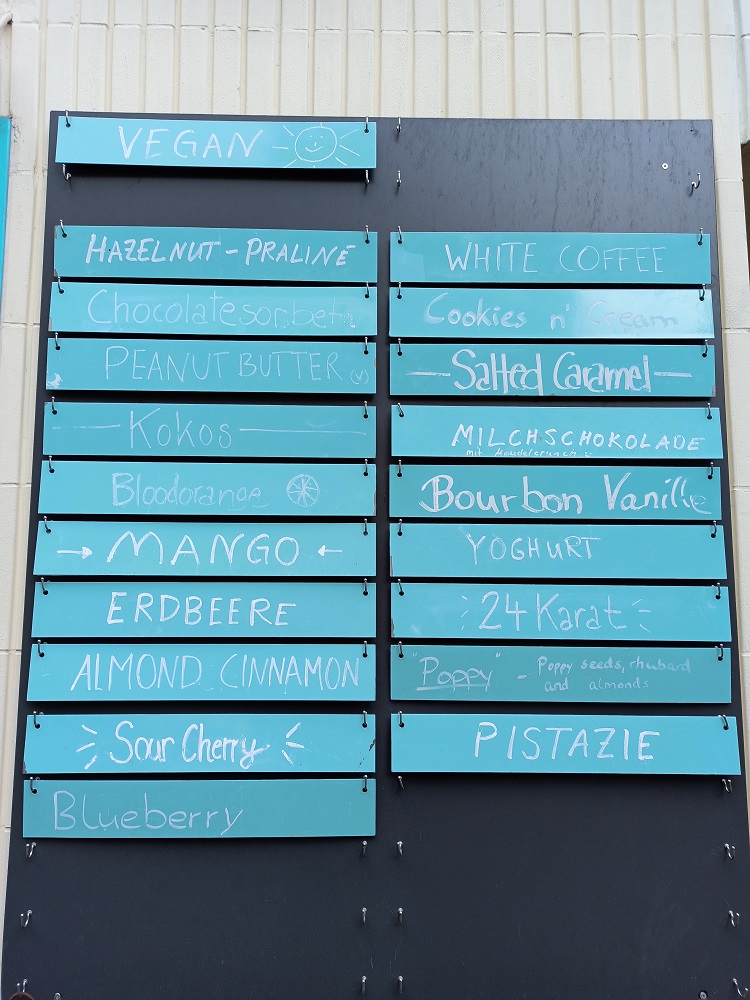 VEGAN
HAZELNUT - PRALINÉ
Chocolatesorbet
PEANUT BUTTER
Kokos
Bloodorange
MANGO
ERDBEERE
ALMOND CINNAMON
Sour Cherry
Blueberry
WHITE COFFEE
Cookies n' Cream
Salted Caramel
MILCHSCHOKOLADE
mit
Bourbon Vanille
YOGHURT
24 Karat
"Poppy" - Poppy seeds, rhubard
and almonds
PISTAZIE